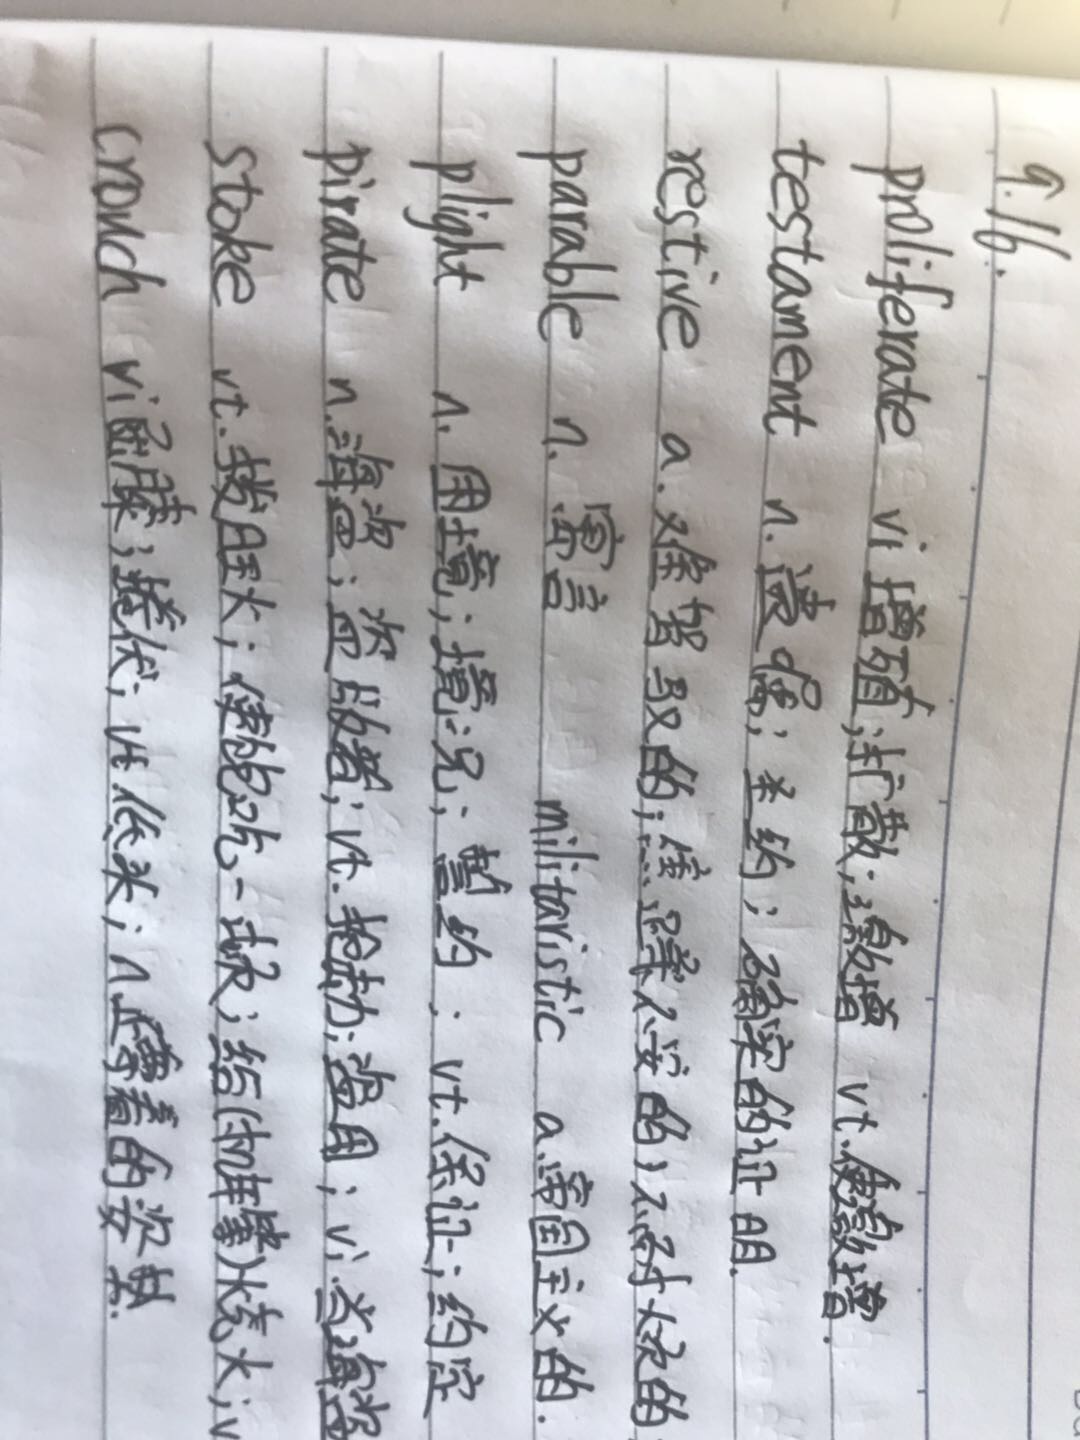 9.16.
proliferate vi 增殖;扩散;激增 vt.使激增.
testament n. 遗嘱;圣约;确实的证明.
restive a.难驾驭的;焦躁不安的;不耐烦的
parable n. 寓言 militaristic a.帝国主义的.
plight n. 困境;境况;誓约; vt.保证;约定
pirate n.海盗;盗版者;vt.抢劫;盗用;vi.当海盗
stoke vt.拨旺火;使饱吃一顿;给(机車等)烧火;v
crouch vi屈膝;蜷伏;vt.低头;n.蹲着的姿势.